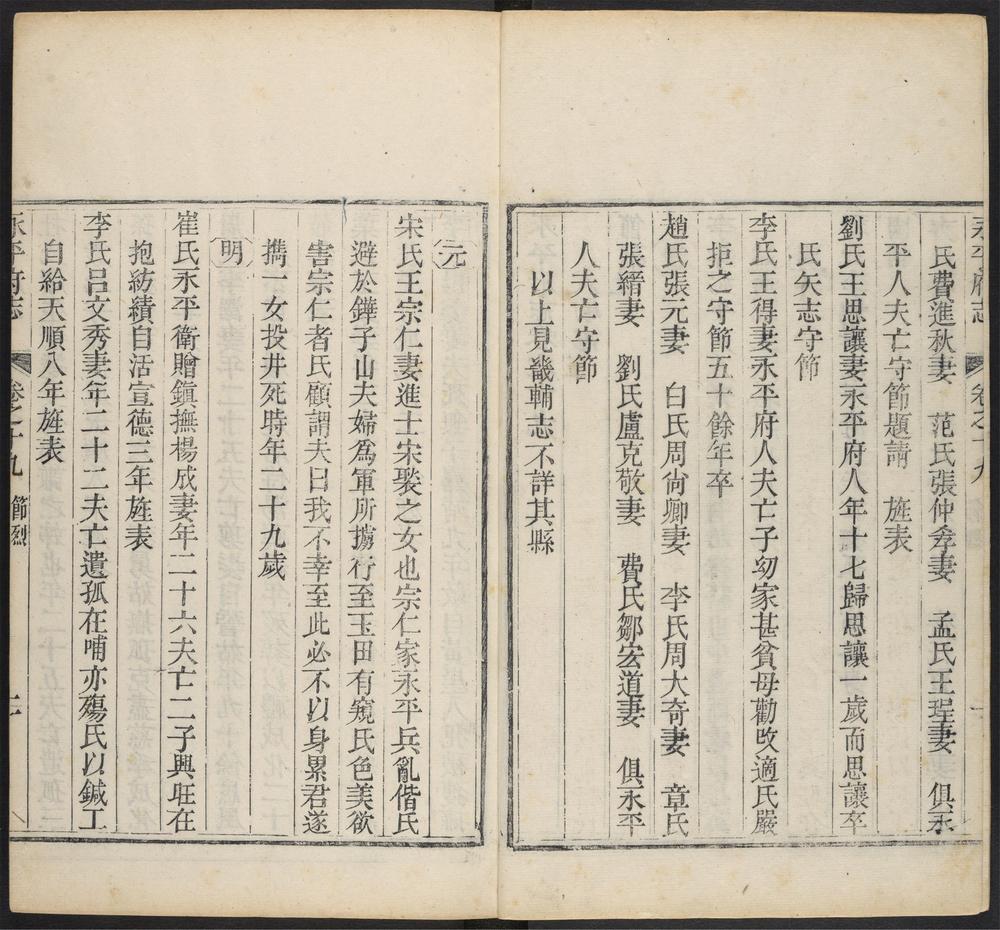 永平府志 卷之十九 一
氏費進秋妻 范氏張仲孝妻 孟氏王珵妻 俱永
平人夫亡守節題請 旌表
劉氏王思讓妻永平府人年十七歸思讓一歲而思讓卒
氏矢志守節
李氏王得妻永平府人夫亡子幼家甚貧母勸改適氏嚴
拒之守節五十餘年卒
趙氏張元妻 白氏周尙卿妻 李氏周大奇妻 章氏
張縉妻 劉氏盧克敬妻 費氏鄒宏道妻 俱永平
人夫亡守節
以上見畿輔志不詳其縣
元
宋氏王宗仁妻進士宋褧之女也宗仁家永平兵亂偕氏
避於鏵子山夫婦爲軍所擄行至玉田有窺氏色美欲
害宗仁者氏顧謂夫曰我不幸至此必不以身累君遂
攜一女投井死時年二十九歲
明
崔氏永平衛贈鎭撫楊成妻年二十六夫亡二子興旺在
抱紡績自活宣德三年旌表
李氏呂文秀妻年二十二夫亡遺孤在哺亦殤氏以鍼工
自給天順八年旌表
永平府志 卷之十九 節烈 二